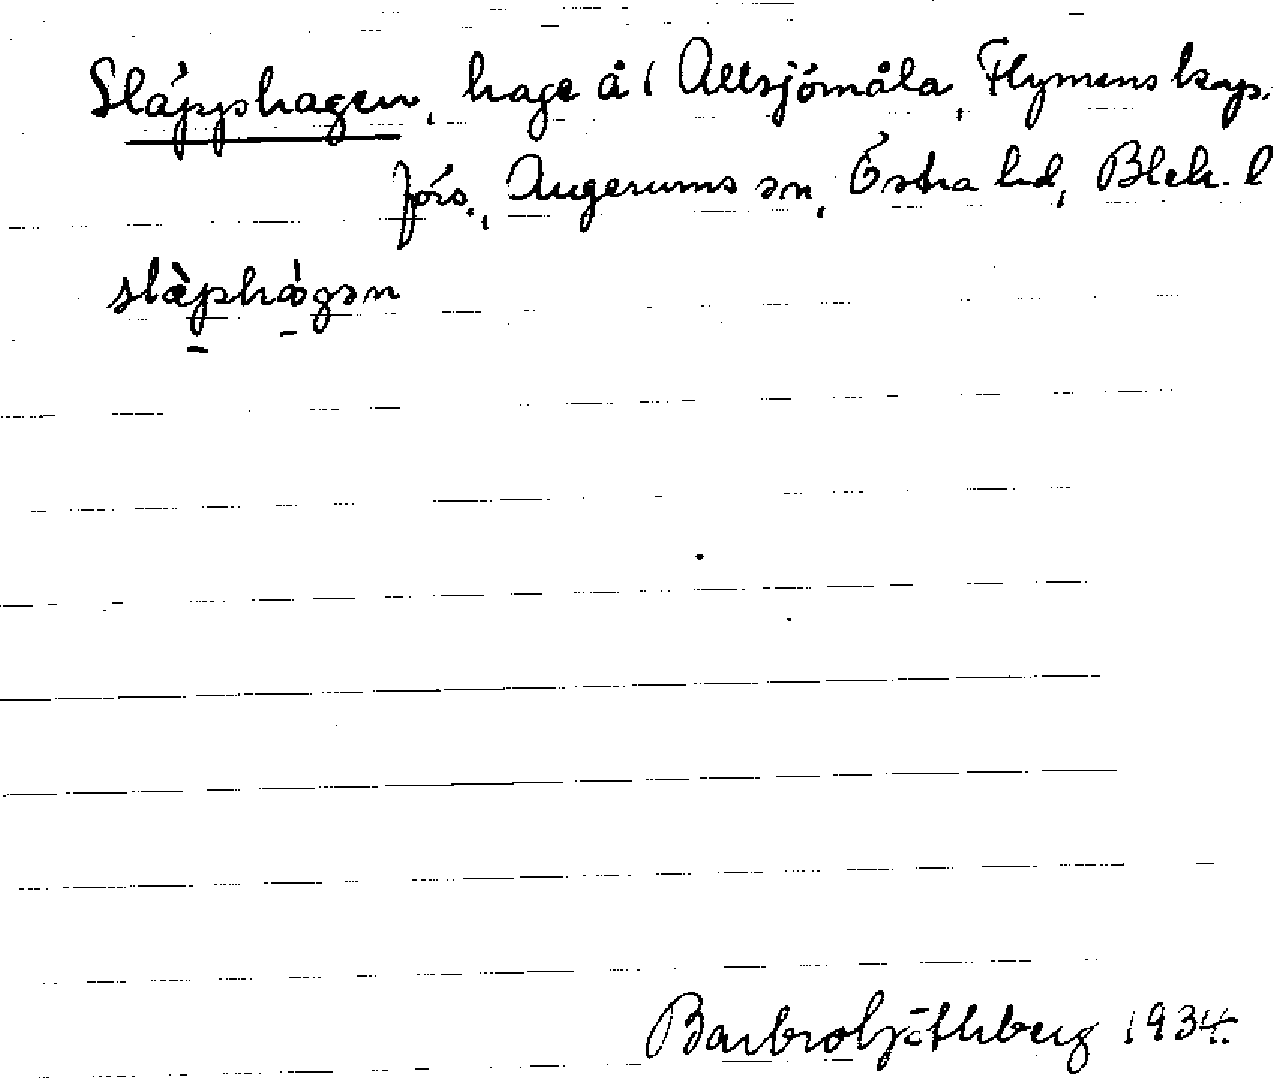 Släpphagen, hage å Allsjömåla, Flymens kap.
förs., Augerums sn, Östra hd, Blek. l
slàphágən
Barbro 1934.